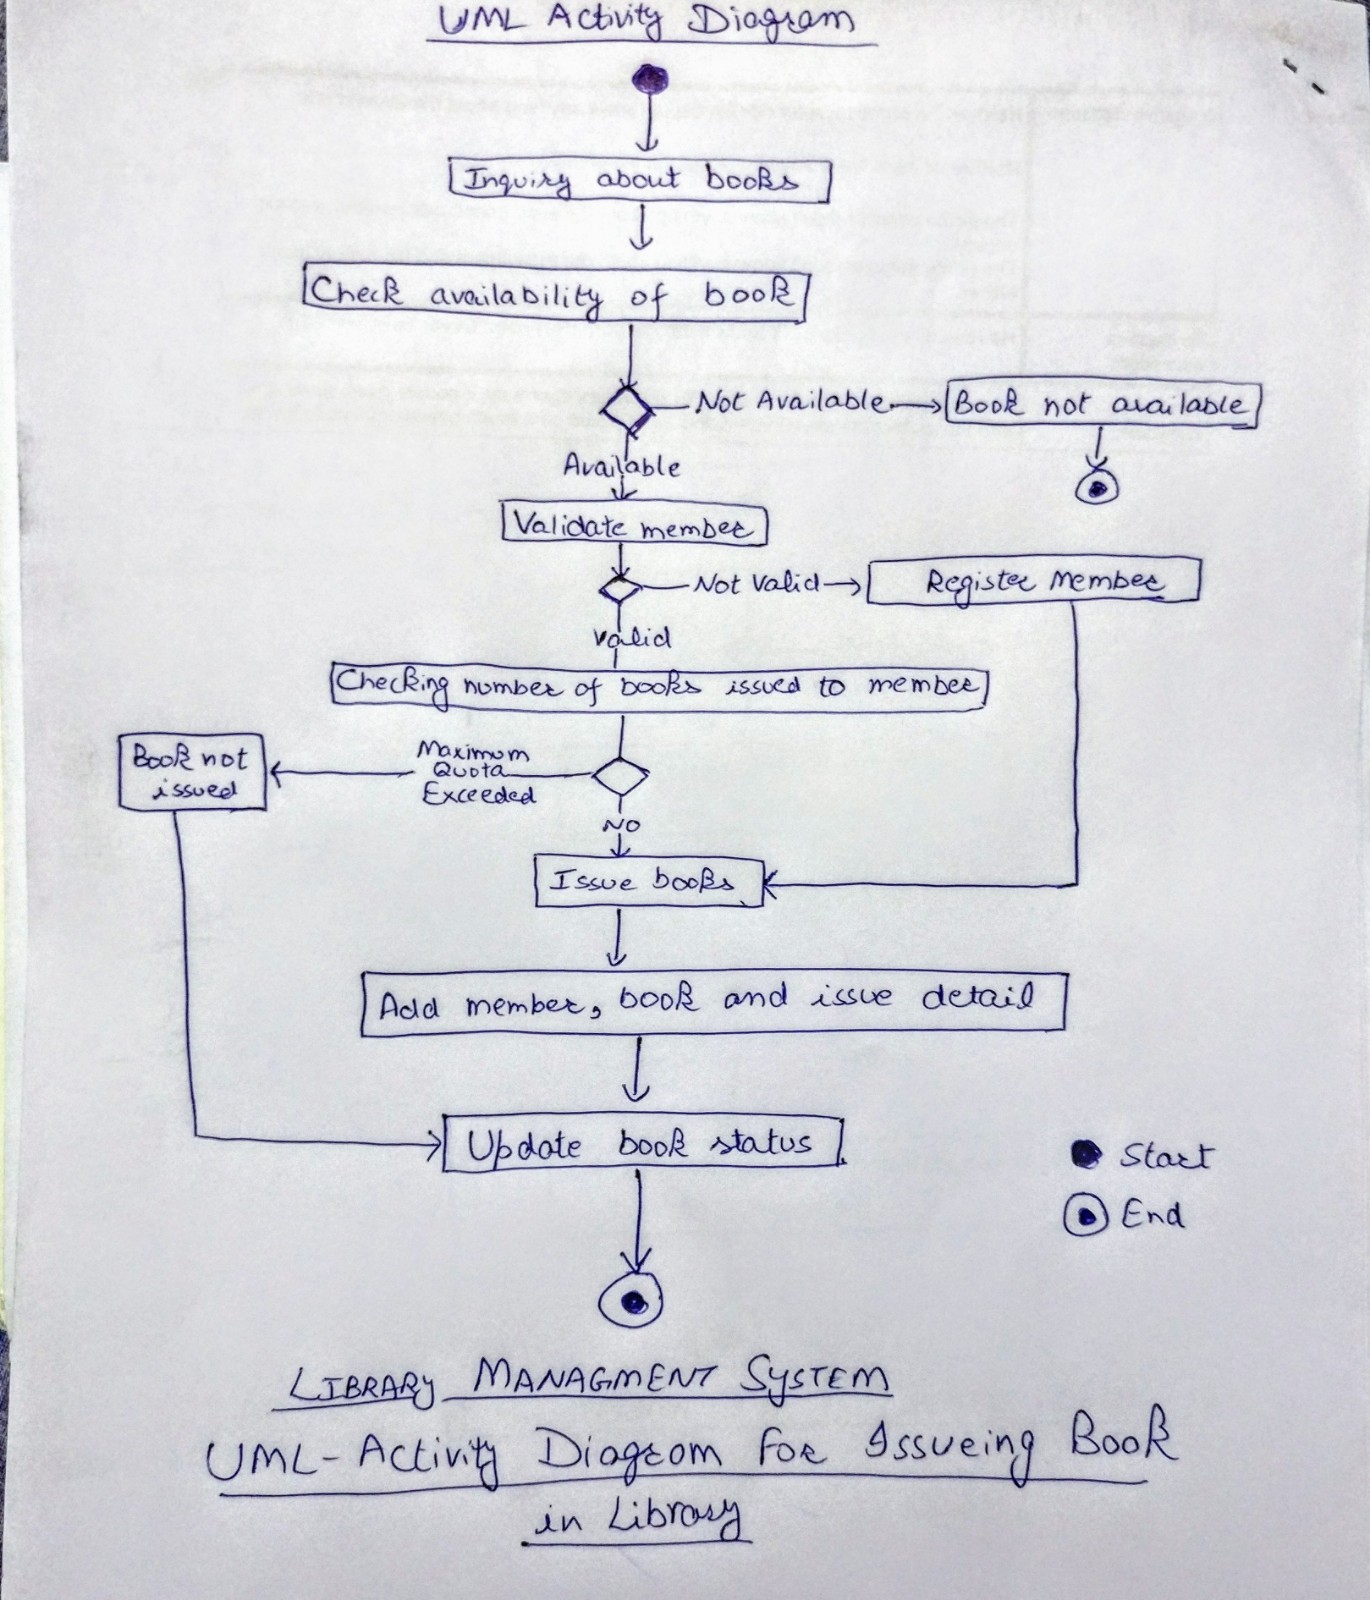 UML Activity Diagram
Inquiry about books
Check availability of book
Not Available
Book not available
Available
Validate member
Not Valid
Register Member
Valid
Checking number of books issued to member
Book not
issued
Maximum
Quota
Exceeded
NO
Issue books
Add member, book and issue detail
Update book status
Start
End
LIBRARY MANAGMENT SYSTEM
UML-Activity Diagram For Issueing Book
in Library